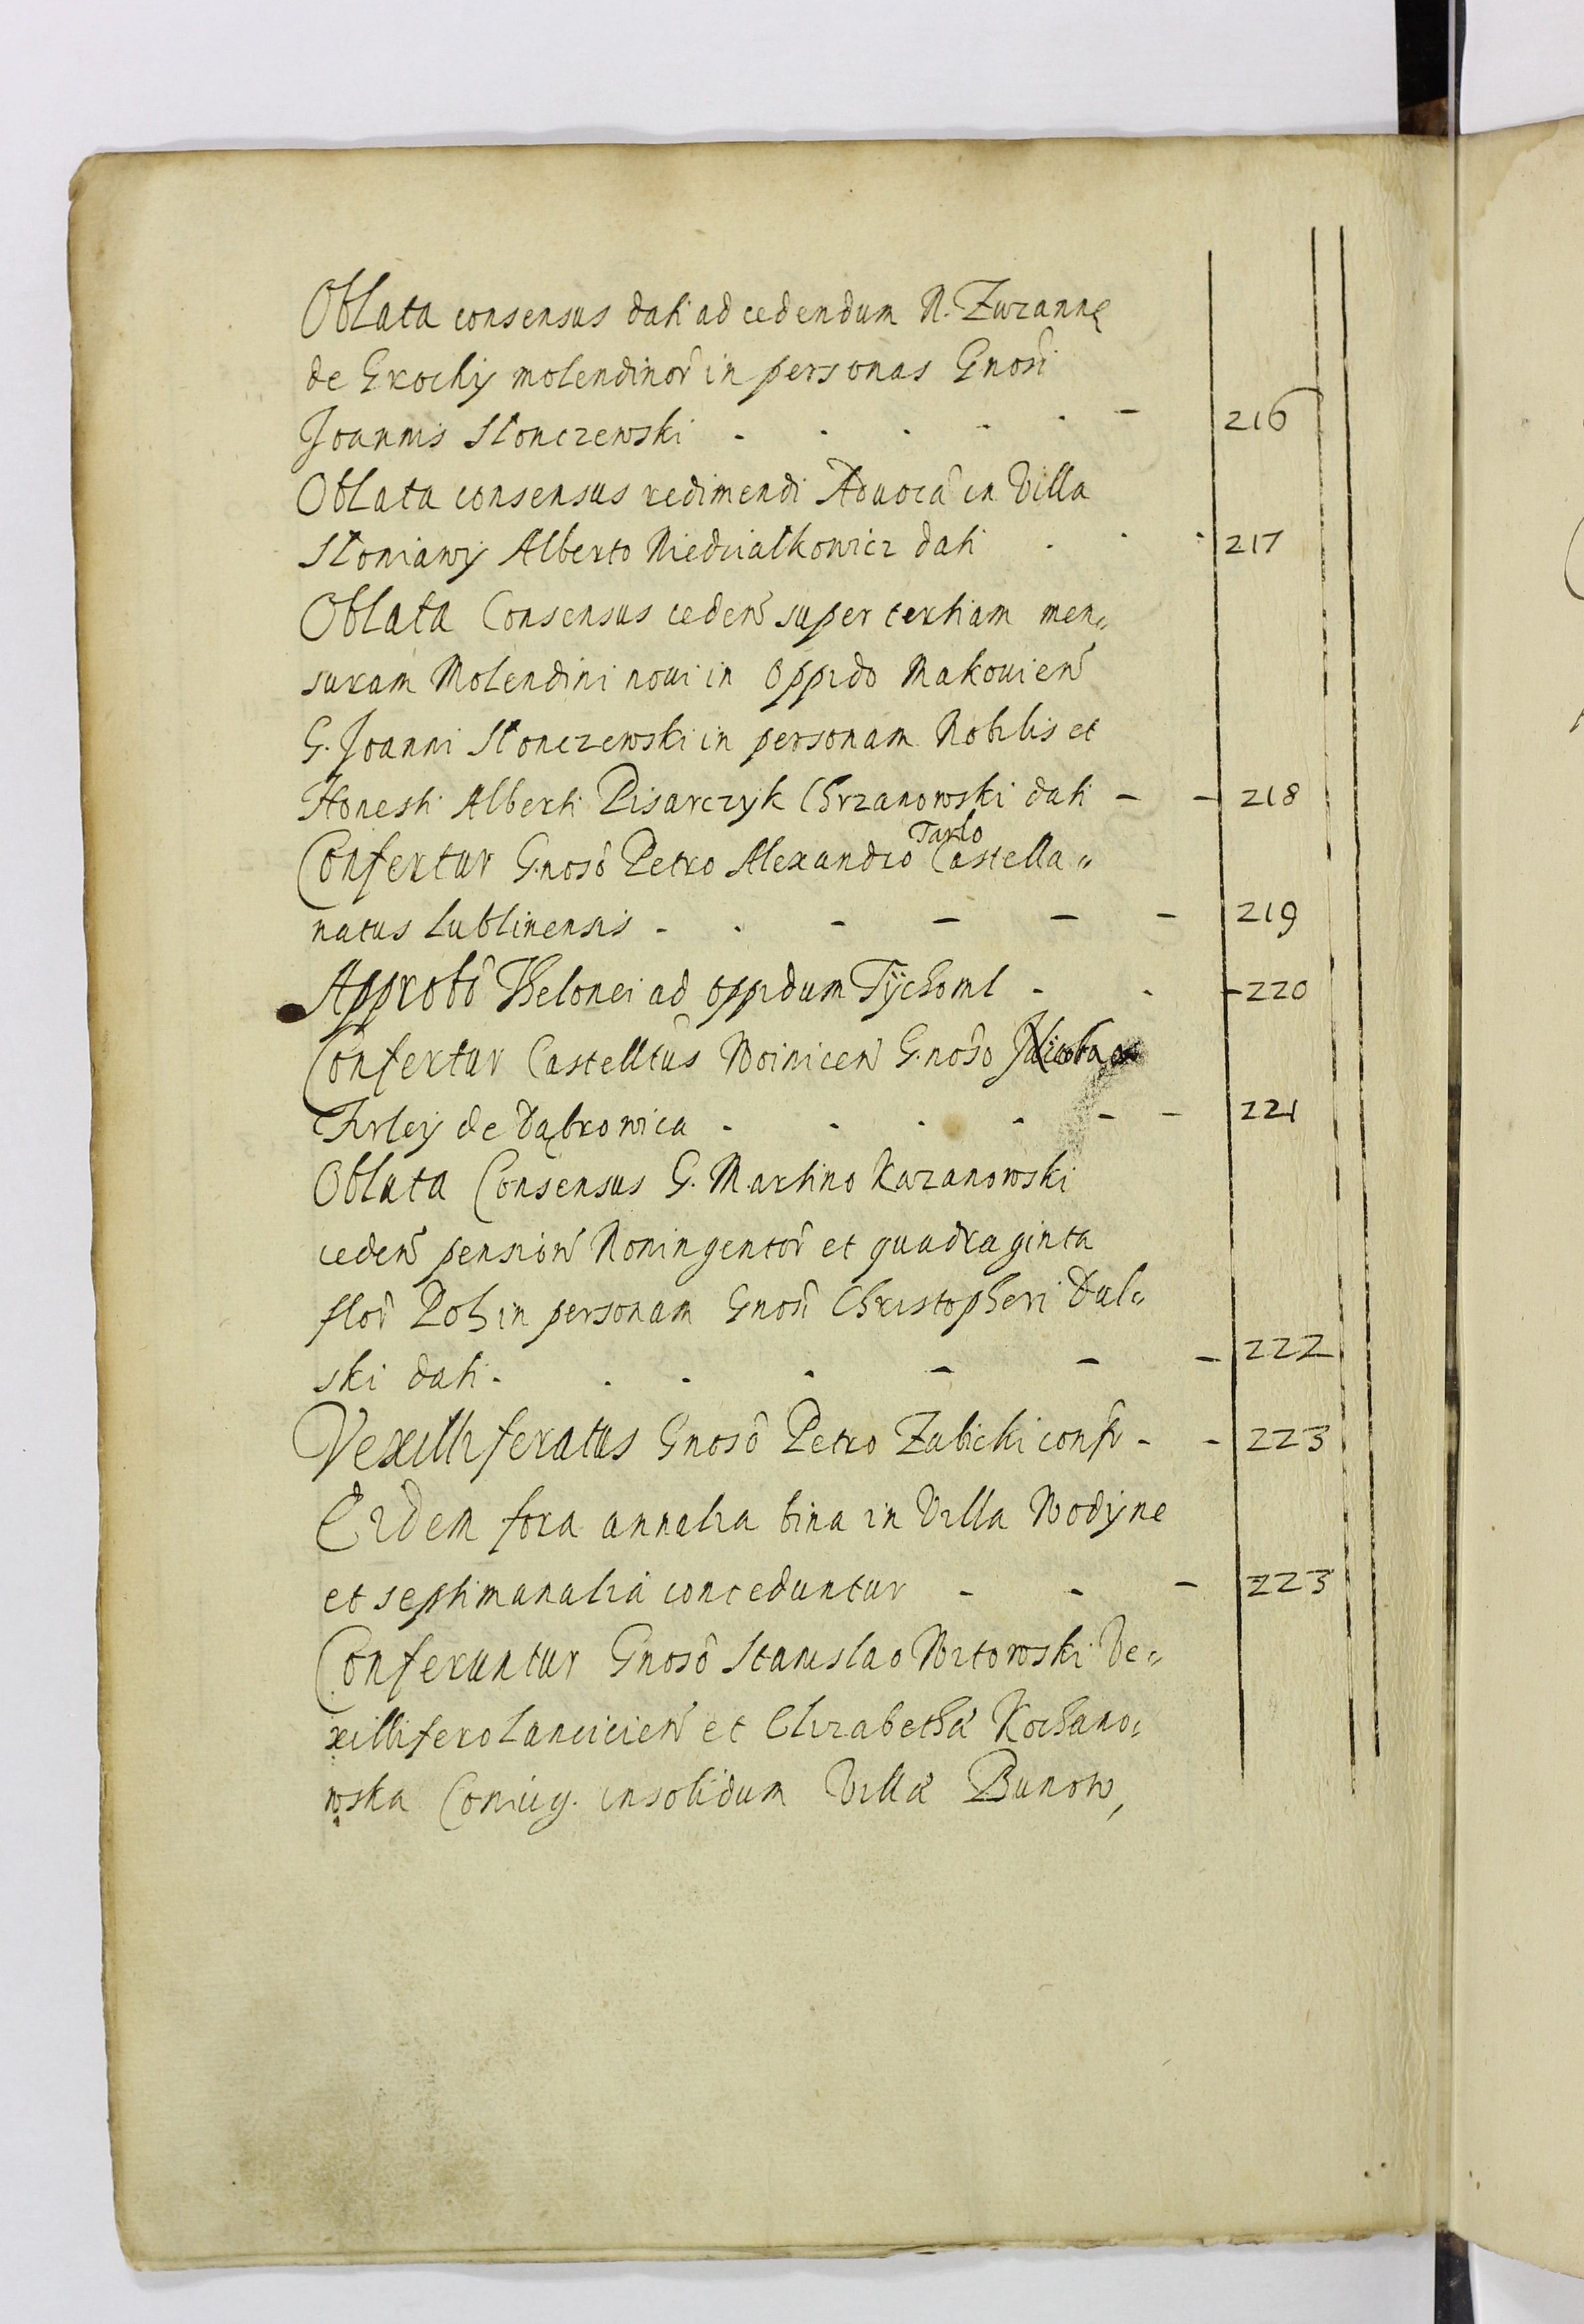 Oblata consensus dati ad cedendum N. Zuzannę
de Grochy molendinor̃ in personas Gnosi
Joannis Słonczewski - - - - - - 216
Oblata consensus redimendi Aduocã in Villa
Słoniawy Alberto Niedziałkowicz dati - - - 217
Oblata Consensus cedeñ super tertiam men„
suram Molendini noui in Oppido Makouieñ
G. Joanni Słonczewski in personam Nobilis et
Honesti Alberti Pisarczyk Chrzanowski dati - - 218
Confertur G.nosô Petro Alexandro Tarło Castella„
natus Lublinensis - - - - - - 219
Approbô Thelonei ad oppidum Tÿchoml - - - 220
Confertur Castelltus Woiniceñ G.nosô
Firley de Dąbrowica - - - - - - 221
Oblata Consensus G. Martino Kazanowski
cedeñ pensioñ Noningentor̃ et quadraginta
flor̃ Pol: in personam Gnosi Christopheri Dul„
ski dati - - - - - - - 222
Vexilliferatus Gnosô Petro Zabicki confr - - 223
Eidem fora annalia bina in Villa Wodÿne
et septimanalia conceduntur - - - 223
Conferuntur Gnosô Stanislao Witowski Ve„
xillifero Lancicieñ et Elizabethæ Kochano„
wska Coniug. insolidum Villæ Bunow,